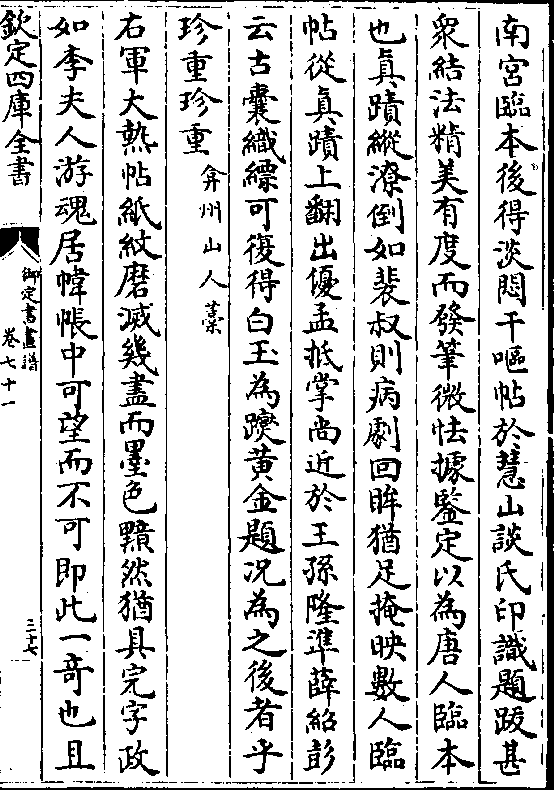 南宮臨本後得淡悶干嘔帖於慧山談氏印識題跋甚
衆結法精美有度而發筆微怯據鍳定以為唐人臨本
也真蹟縱潦倒如裴叔則病劇回眸猶足掩映數人臨
帖從真蹟上翻出優孟抵掌尚近於王孫隆準薛紹彭
云古囊織縹可復得白玉為躞黄金題况為之後者乎
珍重珍重
弇州山人藳
右軍大熱帖紙紋磨滅幾盡而墨色黯然猶具完字政
如李夫人游魂居幃帳中可望而不可即此一竒也且
欽定四庫全書
御定書畫譜
卷七十一
三十七